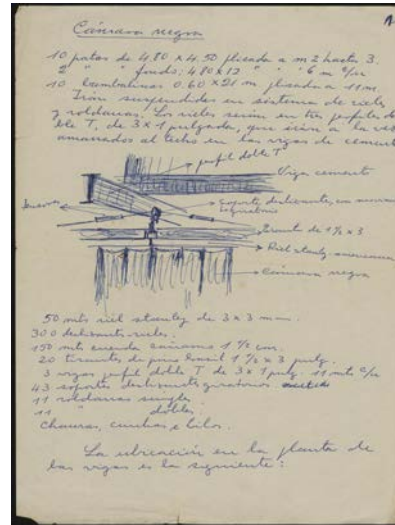 1
Cámara negra
10 patas de 4.80 x 4.50 plicado a m 2 hasta 3.
2 " fondo: 4.80 x 12 " " 6 m c/u
10 bambalinas 0.60 x 21 m plisado a 11 m.
Irán suspendidas en sistema de rieles
y roldanas. Los rieles serán en tres perfiles do
ble T, de 3 x 1 pulgadas, que irán a la vez
amarrados al techo en las vigas de cemento
perfil doble T
Viga cemento
Soporte deslizante, con
giratorio
Tirante de 1 1/2 x 3
Riel stanley americano
Cámara negra
50 mts riel stanley de 3 x 3 mm.
300 deslizante-rieles.
150 mts cuerda cáñamo 1 1/2 cm.
20 tirantes de pino brasil 1 1/2 x 3 pulg.
3 vigas perfil doble T de 3 x 1 pulg. 11 mts c/u
43 soportes deslizantes giratorios
11 roldanas simples
11 " dobles.
Chauras, cunchas e hilos.
La ubicación en la planta de
las vigas es la siguiente: